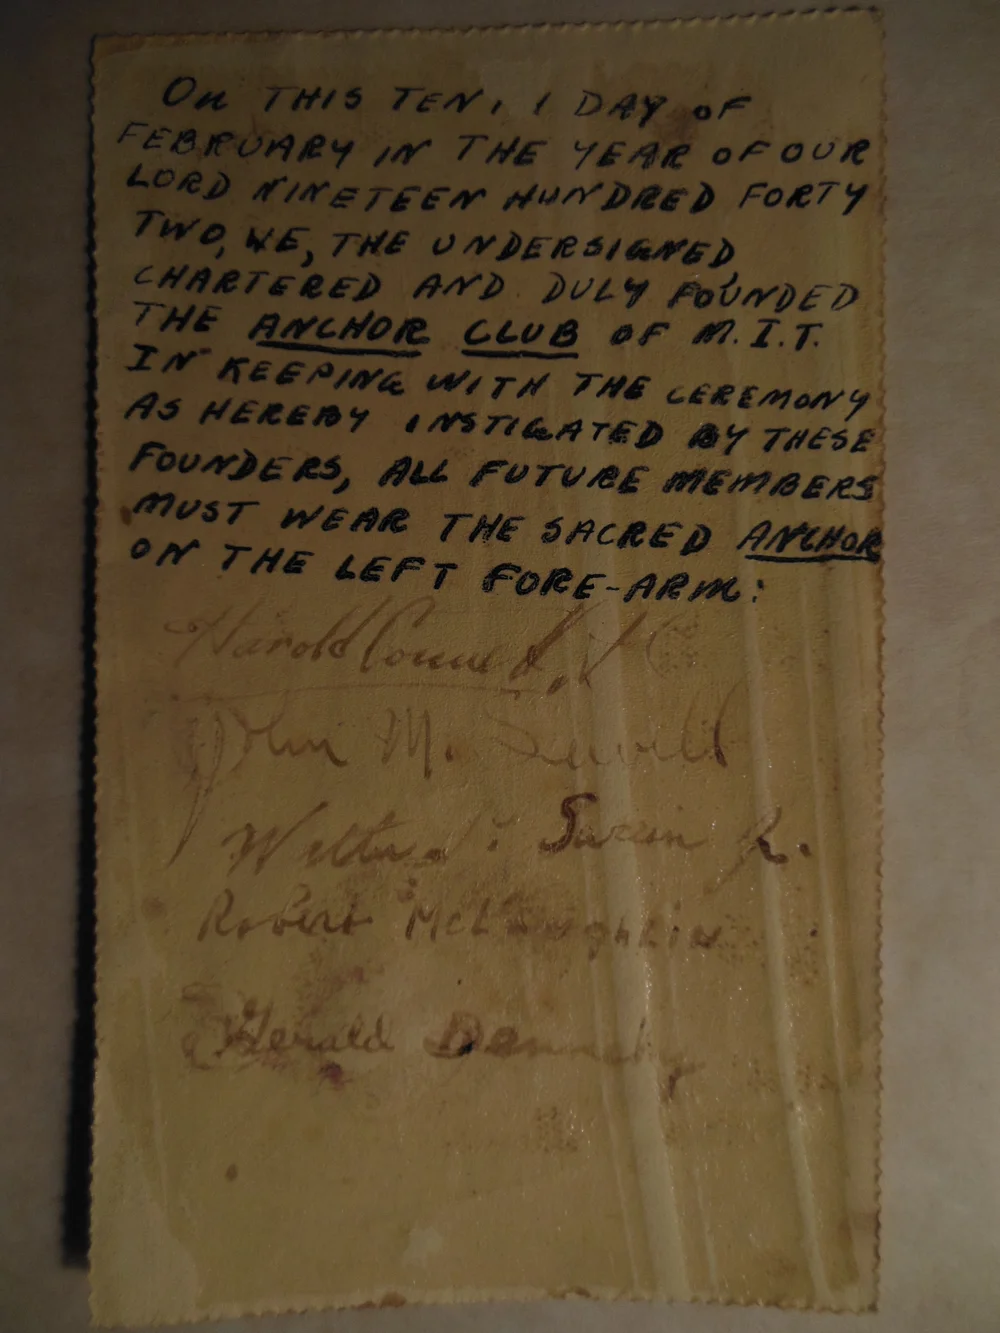 On THIS TEN, 1 DAY OF
FEBRUARY IN THE YEAR OF OUR
LORD NINETEEN HUNDRED FORTY
TWO, WE, THE UNDERSIGNED
CHARTERED AND DULY FOUNDED
THE ANCHOR CLUB OF M.I.T.
IN KEEPING WITH THE CEREMONY
AS HEREBY INSTIGATED BY THESE
FOUNDERS, ALL FUTURE MEMBERS
MUST WEAR THE SACRED ANCHOR
ON THE LEFT FORE-ARM:
Harold
John M.
Jr.
Robert McLaughlin
Gerald